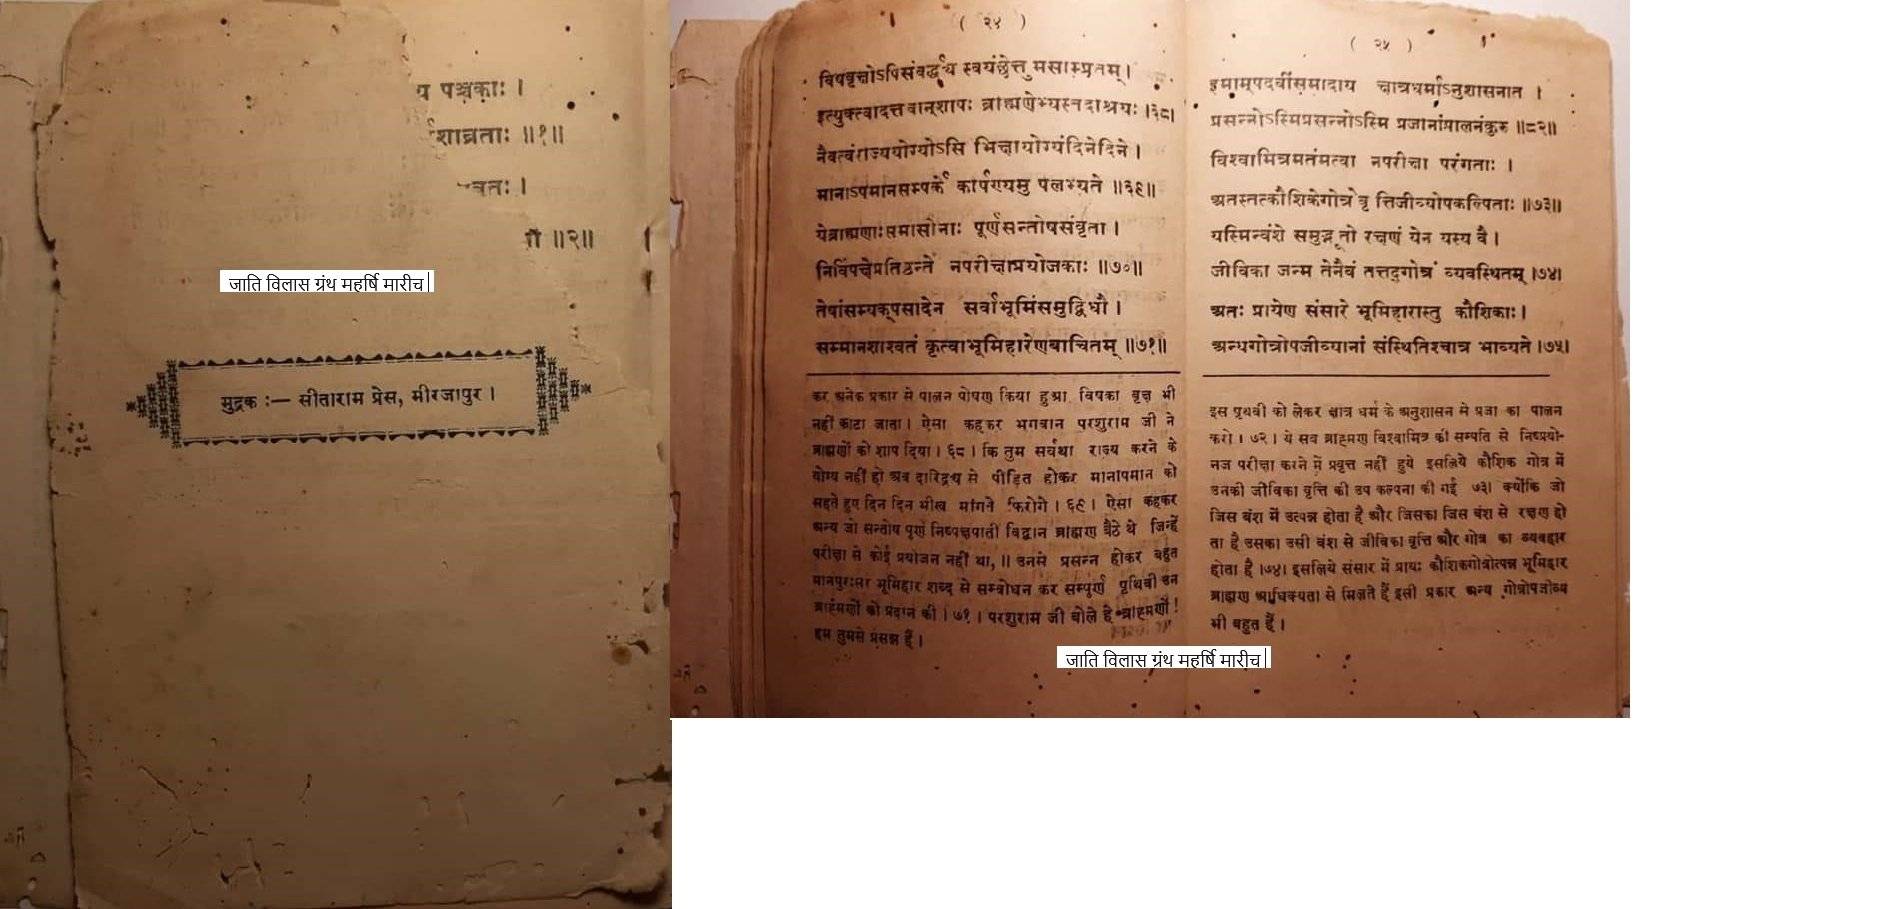 य पञ्चकाः ।
शाव्रताः ॥१॥
वतः ।
॥२॥
जाति विलास ग्रंथ महर्षि मारीच
मुद्रक :— सीताराम प्रेस, मीरजापुर ।
( २४ )
विषवृक्षोऽपिसंवर्द्ध्य स्वयंछेत्तु मसाम्प्रतम् ।
इत्युक्त्वादत्तवान्शापः ब्राह्मणेभ्यस्तदाश्रयः ।६८।
नैवत्वंराज्ययोग्योऽसि भिक्षायोग्यंदिनेदिने ।
मानाऽपमानसम्पर्के कार्पण्यमु पलभ्यते ॥६९॥
येब्राह्मणाःसमासीनाः पूर्णसन्तोषसंवृता ।
निर्विपक्षेप्रतिष्ठन्ते नपरीक्षाप्रयोजकाः ॥७०॥
तेषांसम्यक्प्रसादेन सर्वाभूमिंसमुद्विधौ ।
सम्मानशाश्वतं कृत्वाभूमिहारेणवाचितम् ॥७१॥
कर अनेक प्रकार से पालन पोषण किया हुआ विषका वृक्ष भी
नहीं काटा जाता । ऐसा कहकर भगवान परशुराम जी ने
ब्राह्मणों को शाप दिया । ६८ । कि तुम सर्वथा राज्य करने के
योग्य नहीं हो अब दारिद्रय से पीड़ित होकर मानापमान को
सहते हुए दिन दिन भीख मांगते फिरोगे । ६९ । ऐसा कहकर
अन्य जो सन्तोष पूर्ण निष्पक्षपाती विद्वान ब्राह्मण बैठे थे जिन्हें
परीक्षा से कोई प्रयोजन नहीं था, ॥ उनसे प्रसन्न होकर बहुत
मानपुरःसर भूमिहार शब्द से सम्बोधन कर सम्पूर्ण पृथिवी उन
ब्राह्मणों को प्रदान की । ७१ । परशुराम जी बोले हे ब्राह्मणों !
हम तुमसे प्रसन्न हैं ।
( २५ )
इमाम्पदवींसमादाय क्षात्रधर्माऽनुशासनात ।
प्रसन्नोऽस्मिप्रसन्नोऽस्मि प्रजानांपालनंकुरु ॥८२॥
विश्वामित्रमतंमत्वा नपरीक्षा परंगताः ।
अतस्तत्कौशिकेगोत्रे वृ त्तिजीव्योपकल्पिताः ॥७३॥
यस्मिन्वंशे समुद्भू तो रक्षणं येन यस्य वै ।
जीविका जन्म तेनैवं तत्तद्गोत्रं व्यवस्थितम् ।७४।
अतः प्रायेण संसारे भूमिहारास्तु कौशिकाः ।
अन्धगोत्रोपजीव्यानां संस्थितिश्चात्र भाव्यते ।७५।
इस पृथवी को लेकर क्षात्र धर्म के अनुशासन से प्रजा का पालन
करो । ७२ । ये सब ब्राह्मण विश्वामित्र की सम्पति से निष्प्रयो-
नज परीक्षा करने में प्रवृत्त नहीं हुये इसलिये कौशिक गोत्र में
उनकी जीविका वृत्ति की उप कल्पना की गई ७३। क्योंकि जो
जिस बंश में उत्पन्न होता है और जिसका जिस बंश से रक्षण हो
ता है उसका उसी बंश से जीविका वृत्ति और गोत्र का व्यवहार
होता है ।७४। इसलिये संसार में प्रायः कौशिकगोत्रोत्पन्न भूमिहार
ब्राह्मण आधिक्यता से मिलते हैं इसी प्रकार अन्य गोत्रोपजीव्य
भी बहुत हैं ।
जाति विलास ग्रंथ महर्षि मारीच